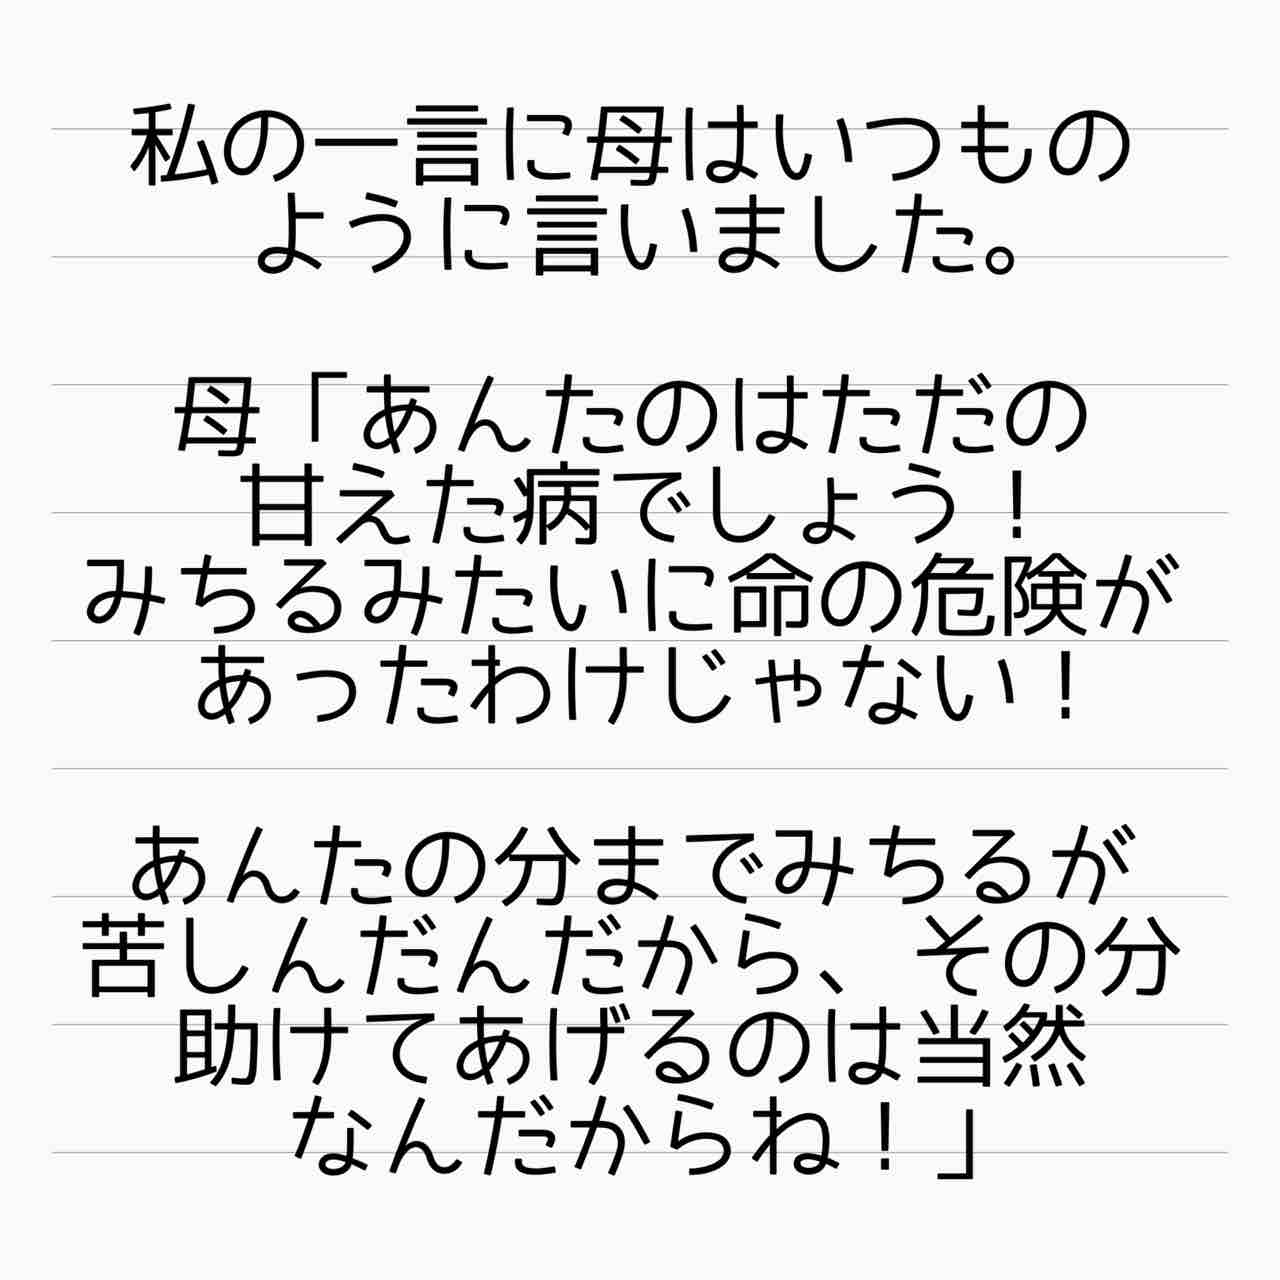 私の一言に母はいつもの
ように言いました。
母「あんたのはただの
甘えた病でしょう！
みちるみたいに命の危険が
あったわけじゃない！
あんたの分までみちるが
苦しんだんだから、その分
助けてあげるのは当然
なんだからね！」